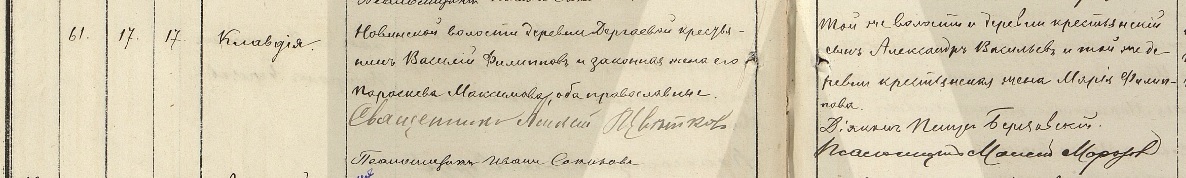 61. 17. 17. Клавдія.
Новинской волости деревни Дергаевой крестья-
нинъ Василій Филипповъ и законная жена его
Параскева Максимова, оба православные.
Священникъ Алексій Цвѣтковъ
Псаломщикъ Иванъ
Той же волости и деревни крестьянскій
сынъ Александръ Васильевъ и той же де-
ревни крестьянская жена Марія Филип-
пова.
Діаконъ Петръ
Псаломщикъ Моисей Морозов